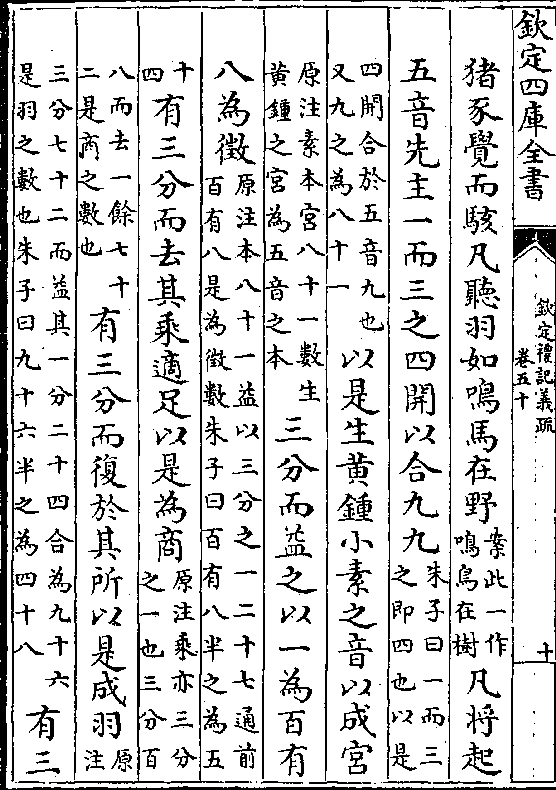 欽定四庫全書
欽定禮記義疏
卷五十
十
猪豕覺而駭凡聽羽如鳴馬在野案此一作鳴鳥在樹凡將起
五音先主一而三之四開以合九九朱子曰一而三之即四也以是
四開合於五音九也又九之為八十一以是生黄鍾小素之音以成宮
原注素本宮八十一數生黄鍾之宮為五音之本三分而益之以一為百有
八為徴原注本八十一益以三分之一二十七通前百有八是為徴數朱子曰百有八半之為五
十四有三分而去其乘適足以是為商原注乘亦三分之一也三分百
八而去一餘七十二是商之數也有三分而復於其所以是成羽原注
三分七十二而益其一分二十四合為九十六是羽之數也朱子曰九十六半之為四十八有三